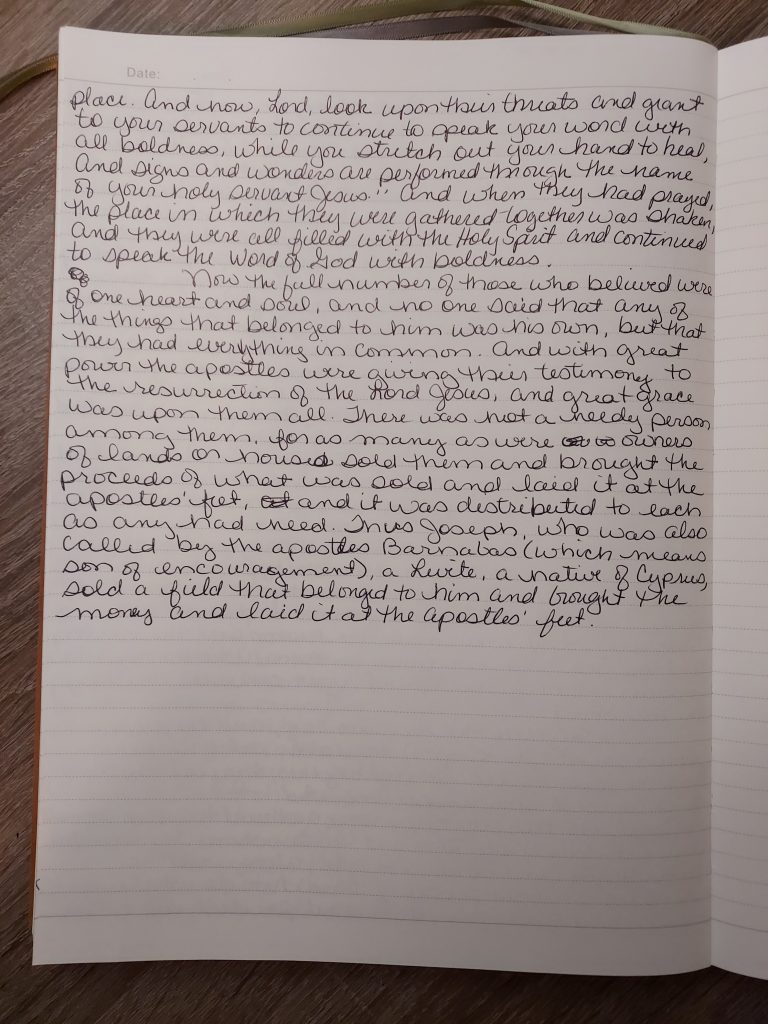 Date:
place. And now, Lord, look upon their threats and grant
to your servants to continue to speak your word with
all boldness, while you stretch out your hand to heal,
and signs and wonders are performed through the name
of your holy servant Jesus." And when they had prayed,
the place in which they were gathered together was shaken,
and they were all filled with the Holy Spirit and continued
to speak the word of God with boldness.
Now the full number of those who believed were
of one heart and soul, and no one said that any of
the things that belonged to him was his own, but that
they had everything in common. And with great
power the apostles were giving their testimony to
the resurrection of the Lord Jesus, and great grace
was upon them all. There was not a needy person
among them, for as many as were owners
of lands or houses sold them and brought the
proceeds of what was sold and laid it at the
apostles' feet, and it was distributed to each
as any had need. Thus Joseph, who was also
called by the apostles Barnabas (which means
son of encouragement), a Levite, a native of Cyprus,
sold a field that belonged to him and brought the
money and laid it at the apostles' feet.